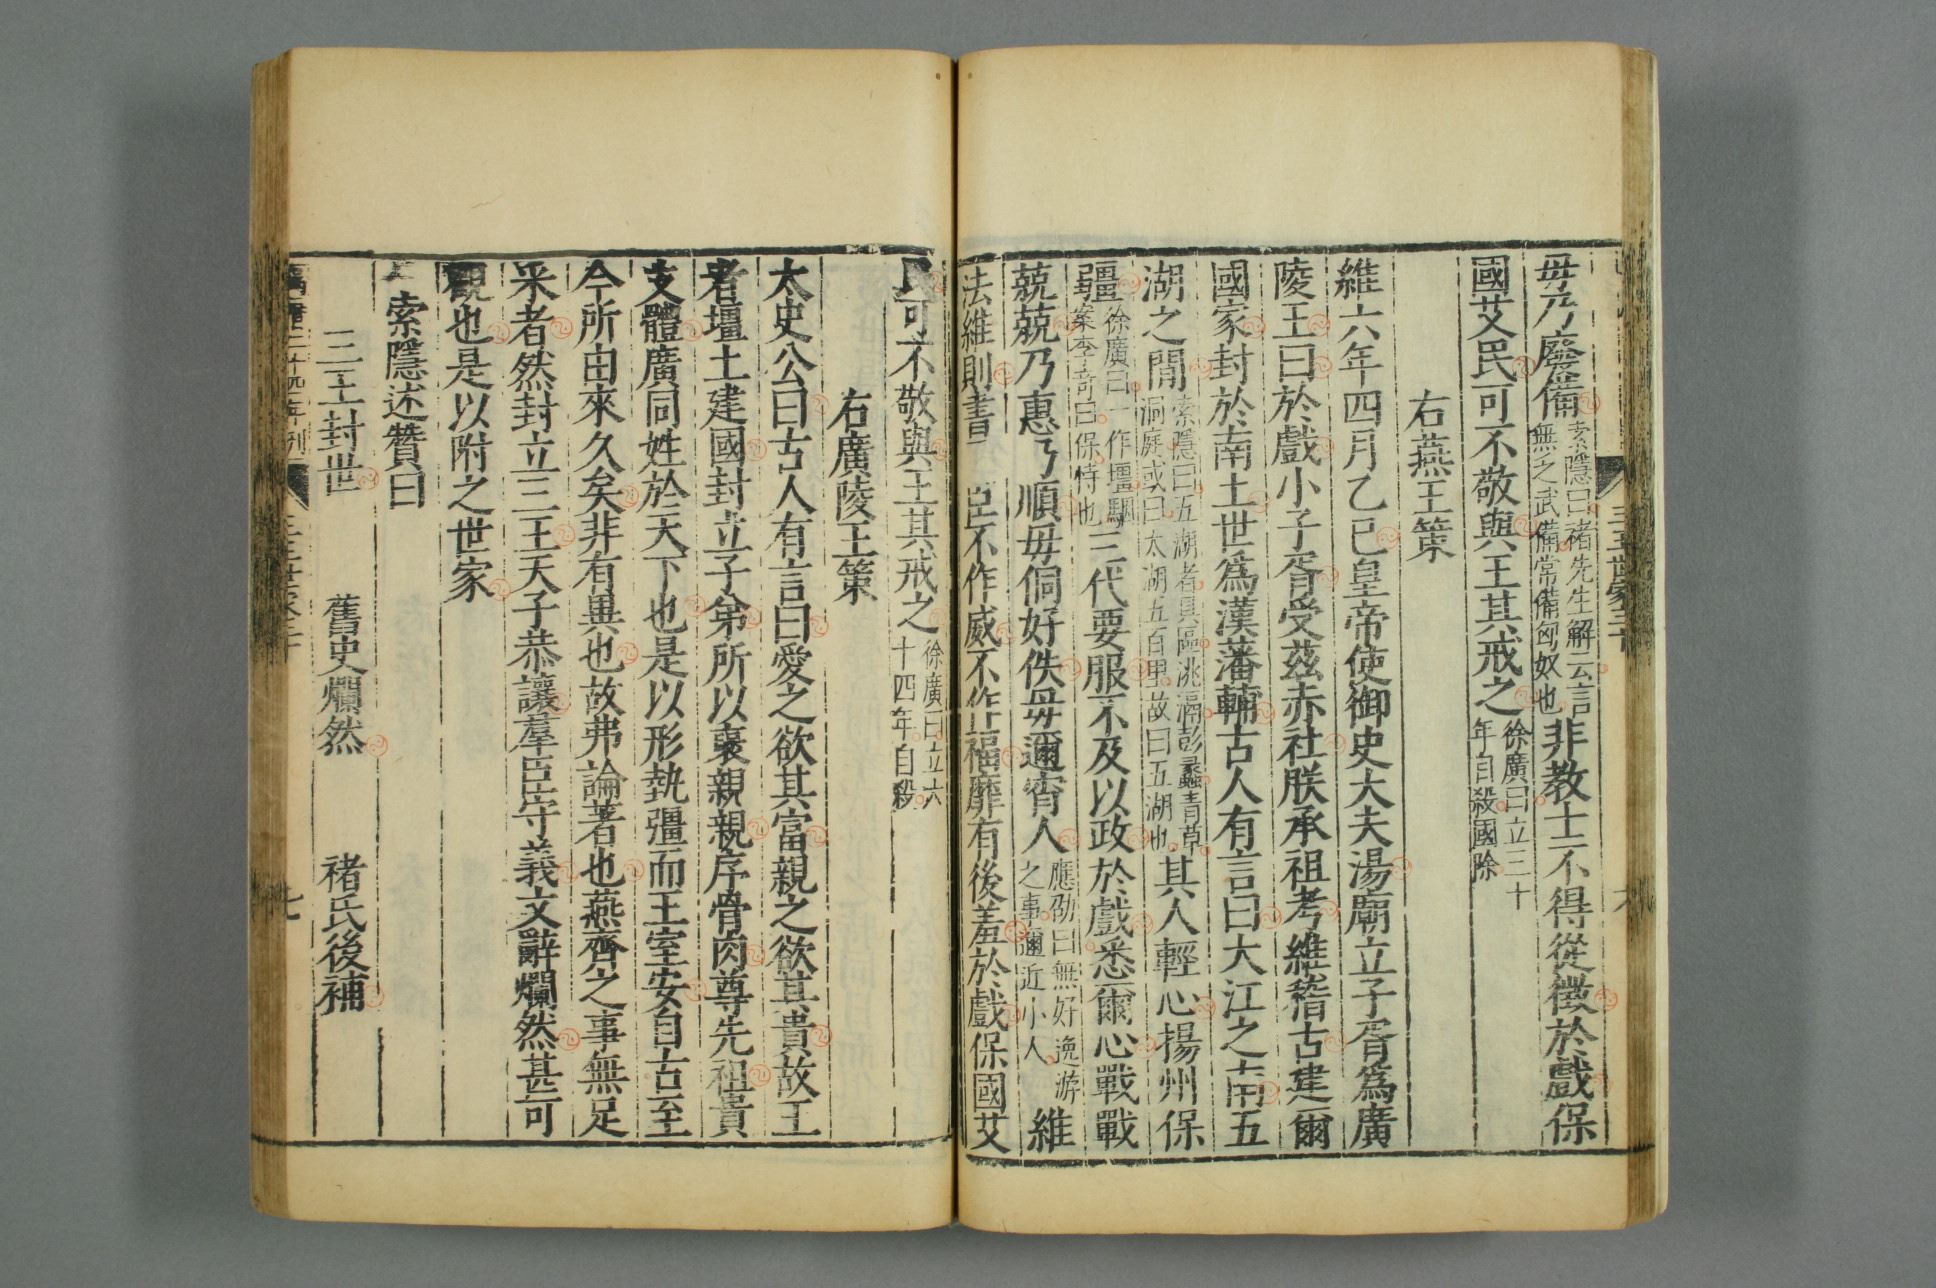 毋乃廢備索隱曰褚先生解云言無之武備常備匈奴也非教士不得從徵於戲保
國艾民可不敬與王其戒之徐廣曰立三十年自殺國除
右燕王策
維六年四月乙巳皇帝使御史大夫湯廟立子胥爲廣
陵王曰於戲小子胥受茲赤社朕承祖考維稽古建爾
國家封於南土世爲漢藩輔古人有言曰大江之南五
湖之閒索隱曰五湖者具區洮滆彭蠡青草洞庭或曰太湖五百里故曰五湖也其人輕心揚州保
疆徐廣曰一作壇駰案李奇曰保恃也三代要服不及以政於戲悉爾心戰戰
兢兢乃惠乃順毋侗好佚毋邇宵人應劭曰無好逸游之事邇近小人維
法維則書臣不作威不作福靡有後羞於戲保國艾
民可不敬與王其戒之徐廣曰立六十四年自殺
右廣陵王策
太史公曰古人有言曰愛之欲其富親之欲其貴故王
者壃土建國封立子弟所以褒親親序骨肉尊先祖貴
支體廣同姓於天下也是以形埶彊而王室安自古至
今所由來久矣非有異也故弗論著也燕齊之事無足
采者然封立三王天子恭讓羣臣守義文辭爛然甚可
觀也是以附之世家
索隱述贊曰
三王封世　舊史爛然　褚氏後補
三王世家三十
六
三王世家三十
七